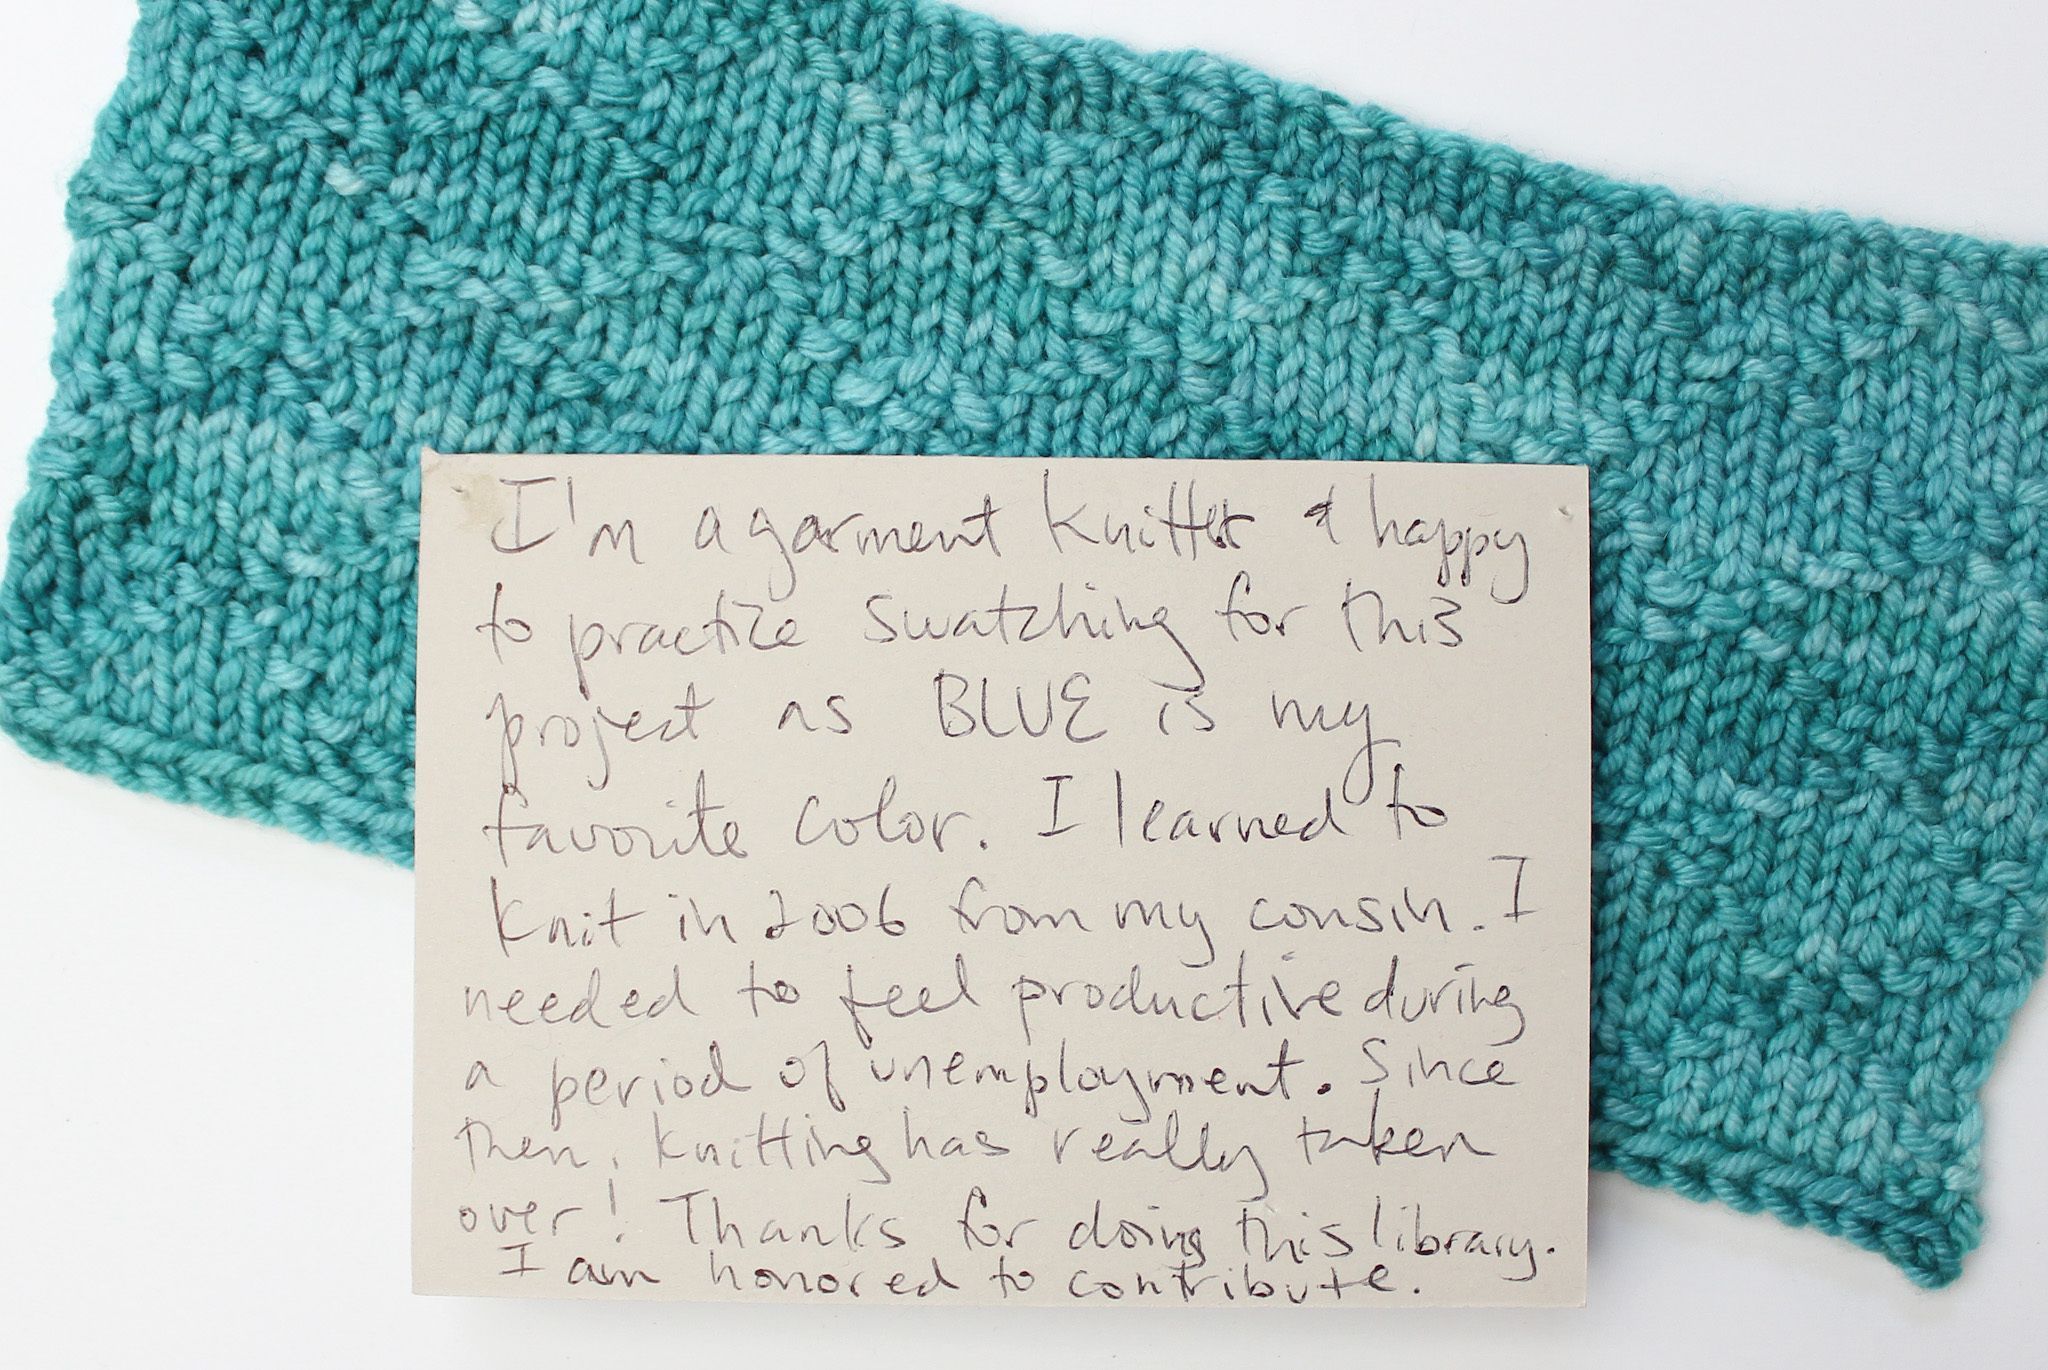 I'm a garment knitter & happy
to practice swatching for this
project as BLUE is my
favorite color. I learned to
knit in 2006 from my cousin. I
needed to feel productive during
a period of unemployment. Since
then, knitting has really taken
over! Thanks for doing this library.
I am honored to contribute.